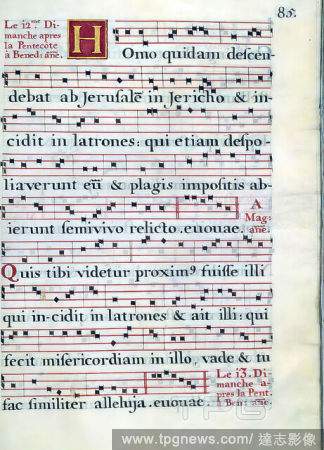 85.
Le 12.me Di-
manche apres
la Pentecôte
à Bened: añe.
HOmo quidam descen-
debat ab Jerusalẽ in Jericho & in-
cidit in latrones: qui etiam despo-
liaverunt eũ & plagis impositis ab-
ierunt semivivo relicto. euouae.
A
Mag:
añe.
Quis tibi videtur proxim9 fuisse illi
qui in-cidit in latrones & ait illi: qui
fecit misericordiam in illo, vade & tu
fac similiter alleluja. euouae.
Le 13. Di-
manche a-
pres la Pent.
à Ben: añe.
TPG
www.tpgnews.com/達志影像